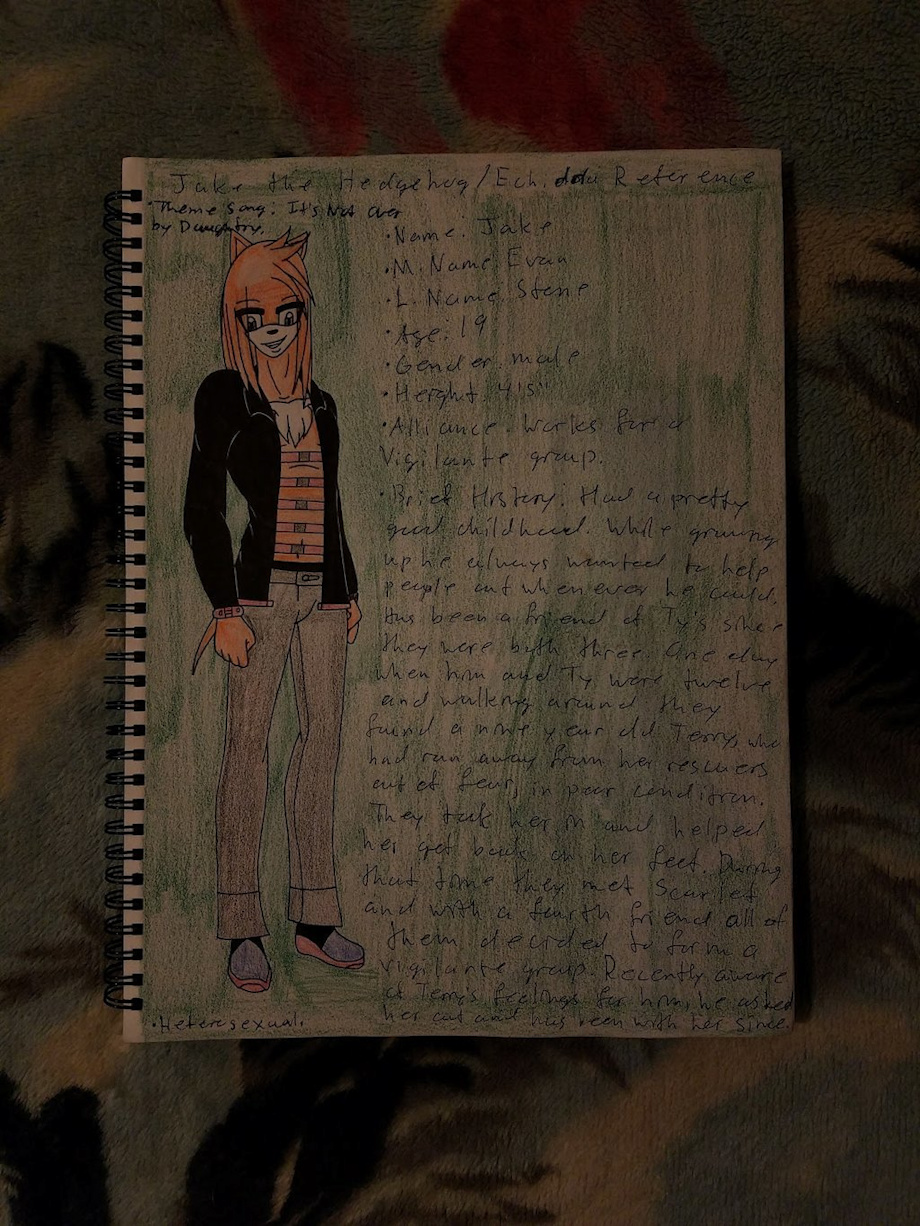 Jake the Hedgehog/Echidda Reference
•Theme Song: It's Not Over
by Daughtry.
•Name: Jake
•M. Name: Evan
•L. Name: Stone
•Age: 19
•Gender: male
•Height: 4'5"
•Alliance: Works for a
vigilante group.
•Brief History: Had a pretty
good childhood. While growing
up he always wanted to help
people out whenever he could.
Has been a friend of Ty's since
they were both three. One day
when him and Ty were twelve
and walking around they
found a nine year old Terry, who
had run away from her rescuers
out of fear, in poor condition.
They took her in and helped
her get back on her feet. During
that time they met Scarlet
and with a fourth friend all of
them decided to form a
vigilante group. Recently aware
of Terry's feelings for him, he asked
her out and has been with her since.
•Heterosexual.